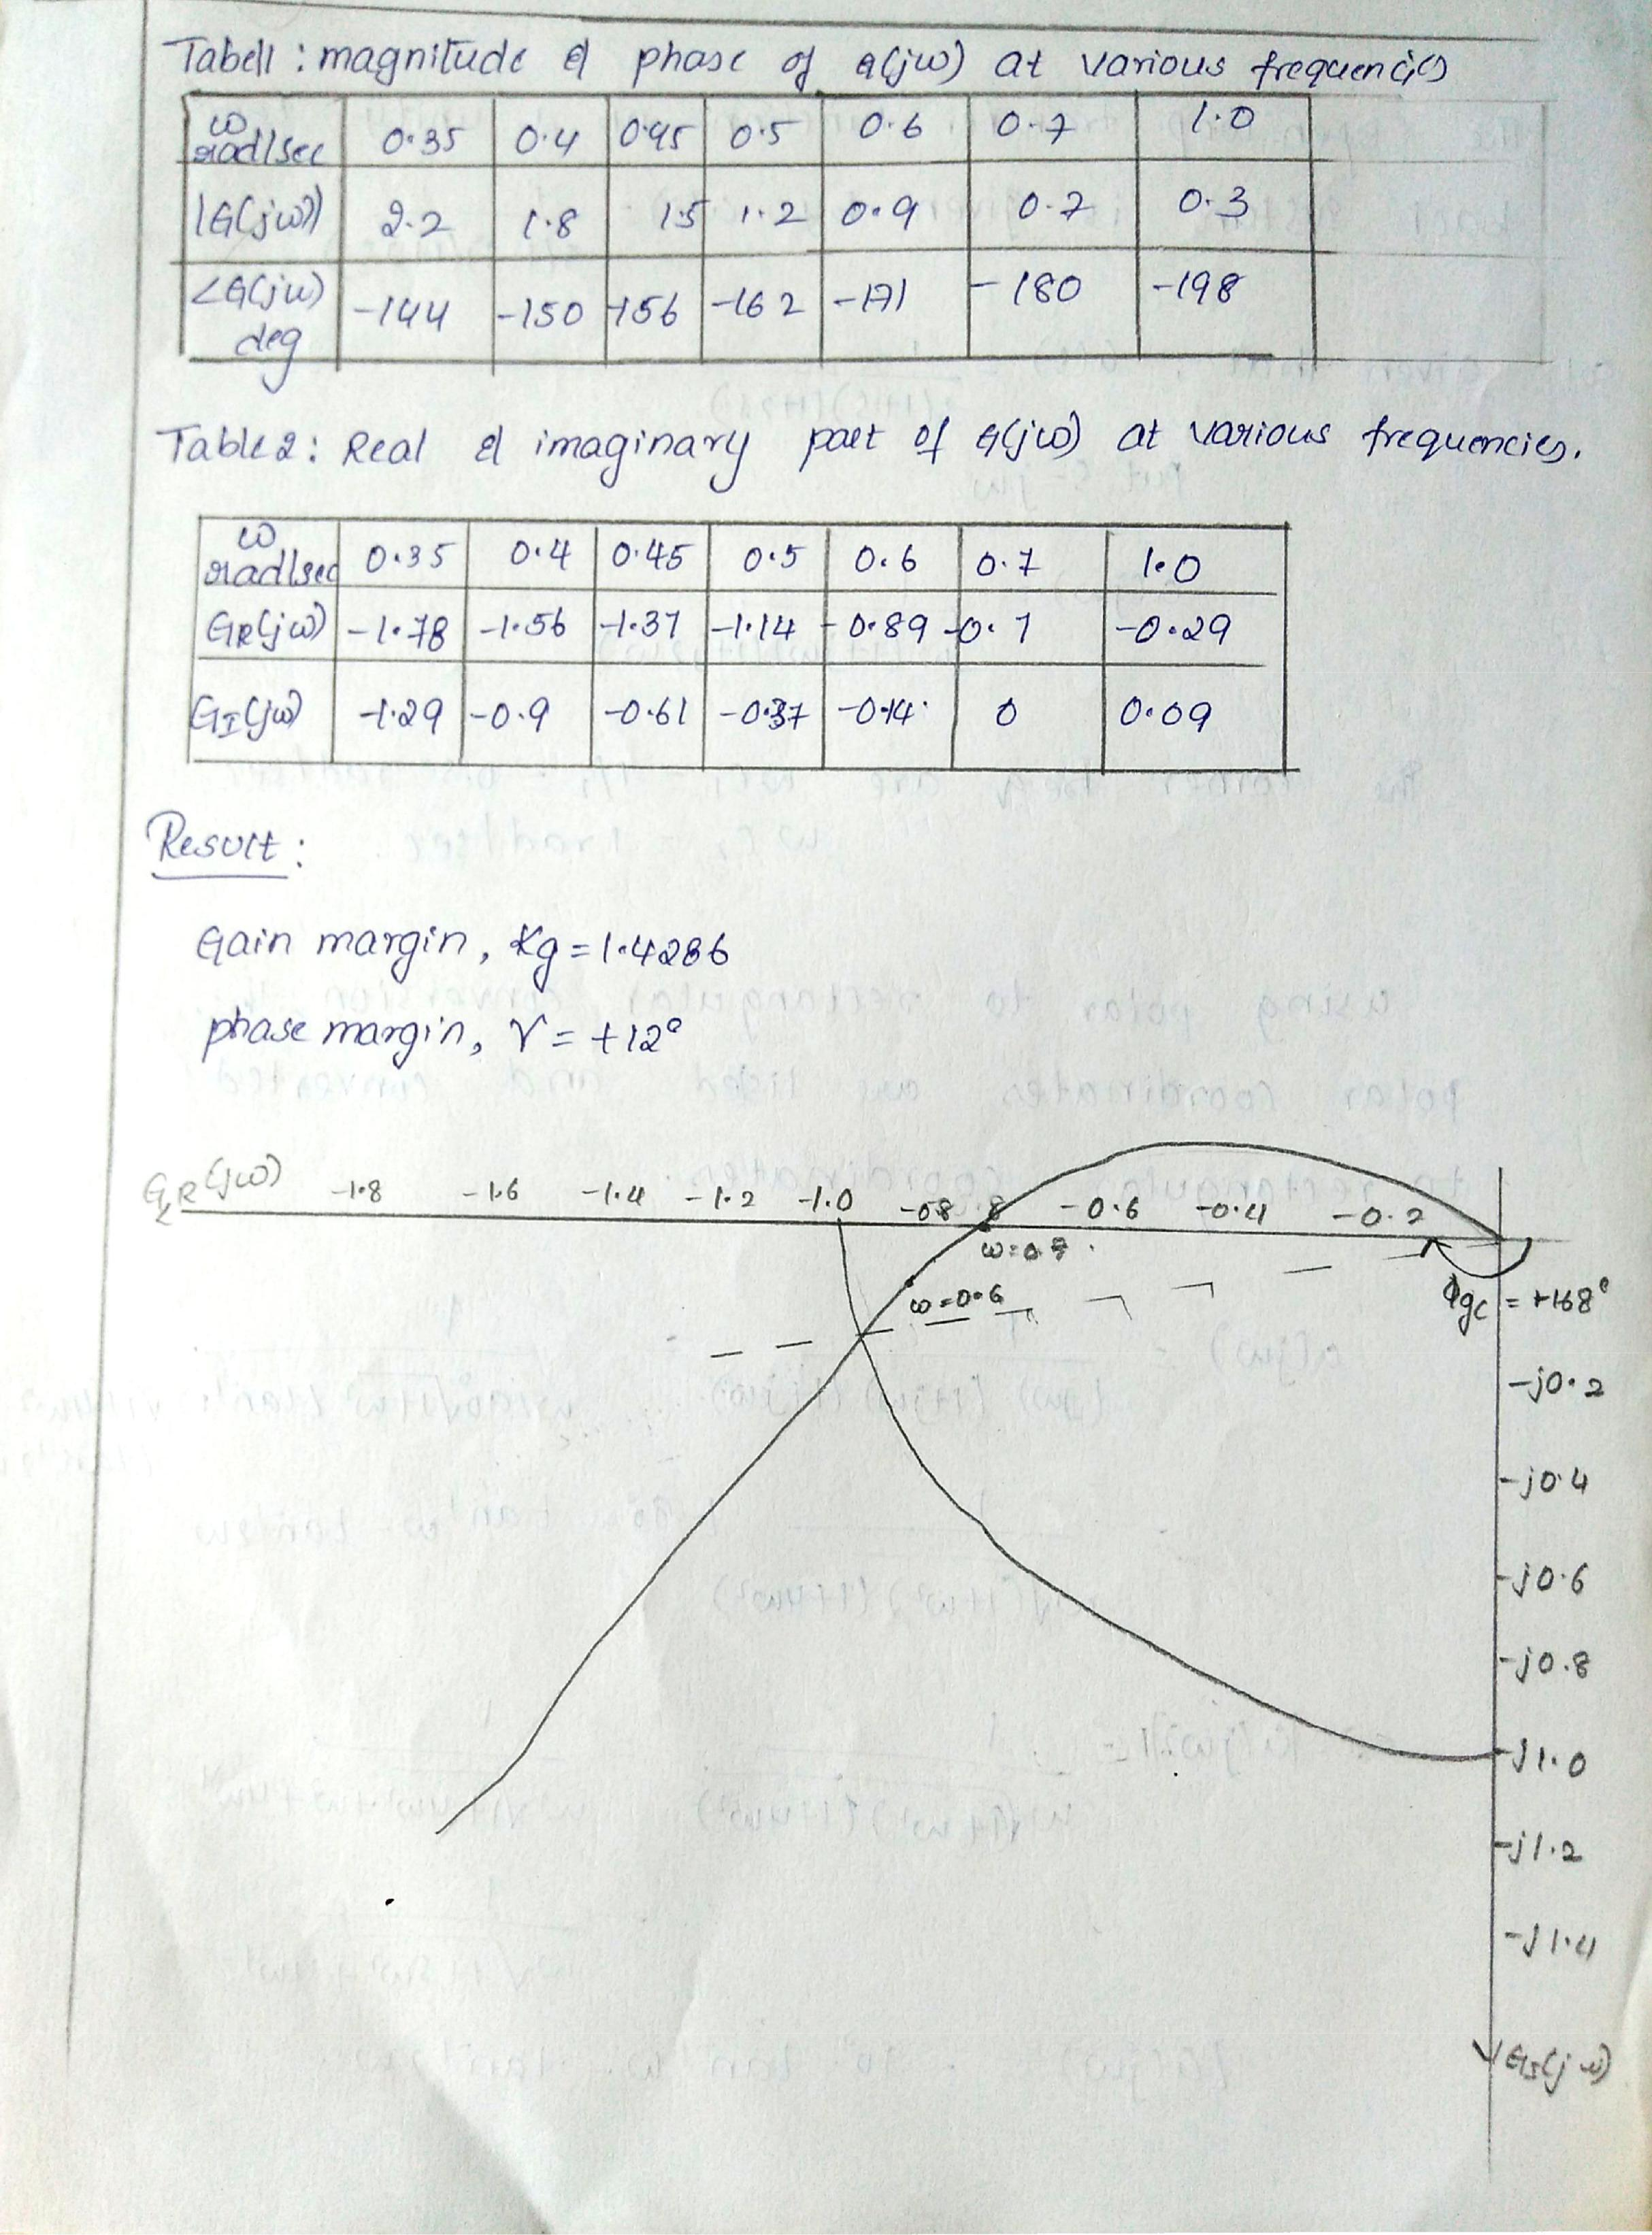 Tabel1 : magnitude & phase of G(jω) at various frequencies
ω rad/sec 0.35 0.4 0.45 0.5 0.6 0.7 1.0
|G(jω)| 2.2 1.8 1.5 1.2 0.9 0.7 0.3
∠G(jω) deg -144 -150 -156 -162 -171 -180 -198
Table2: Real & imaginary part of G(jω) at various frequencies.
ω rad/sec 0.35 0.4 0.45 0.5 0.6 0.7 1.0
GR(jω) -1.78 -1.56 -1.37 -1.14 -0.89 -0.7 -0.29
GI(jω) -1.29 -0.9 -0.61 -0.37 -0.14 0 0.09
Result:
Gain margin, Kg = 1.4286
phase margin, γ = +12°
GR(jω) -1.8 -1.6 -1.4 -1.2 -1.0 -0.8 -0.6 -0.4 -0.2
ω=0.7
ω=0.6
ϕgc = +168°
-j0.2
-j0.4
-j0.6
-j0.8
-j1.0
-j1.2
-j1.4
GI(jω)